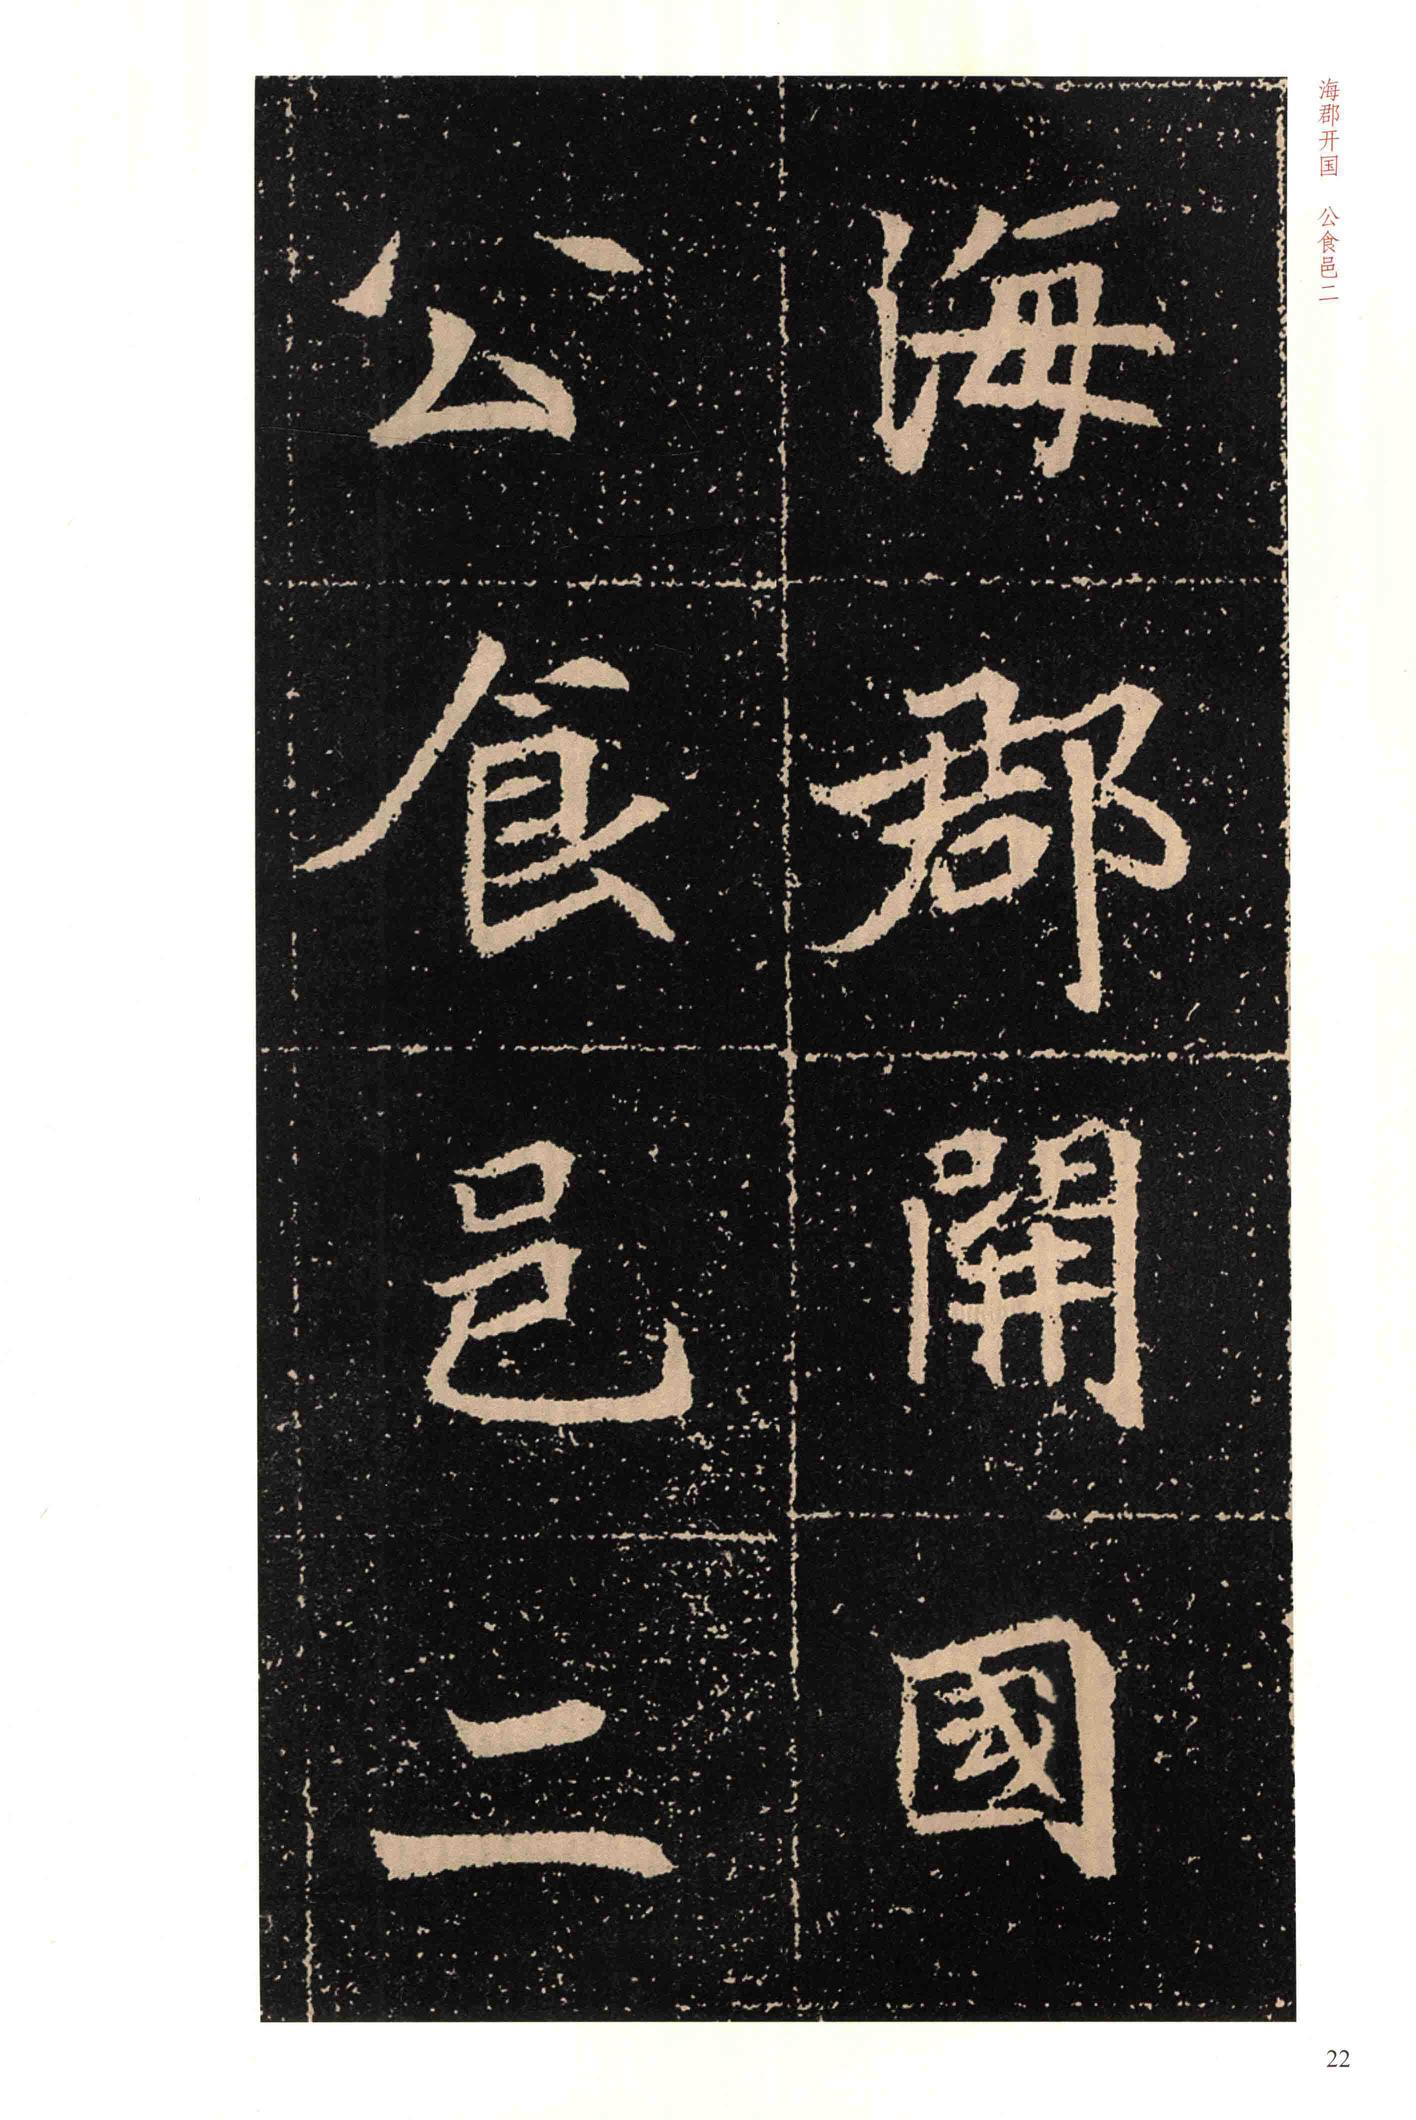 海郡開國
公食邑二
海郡开国 公食邑二
22